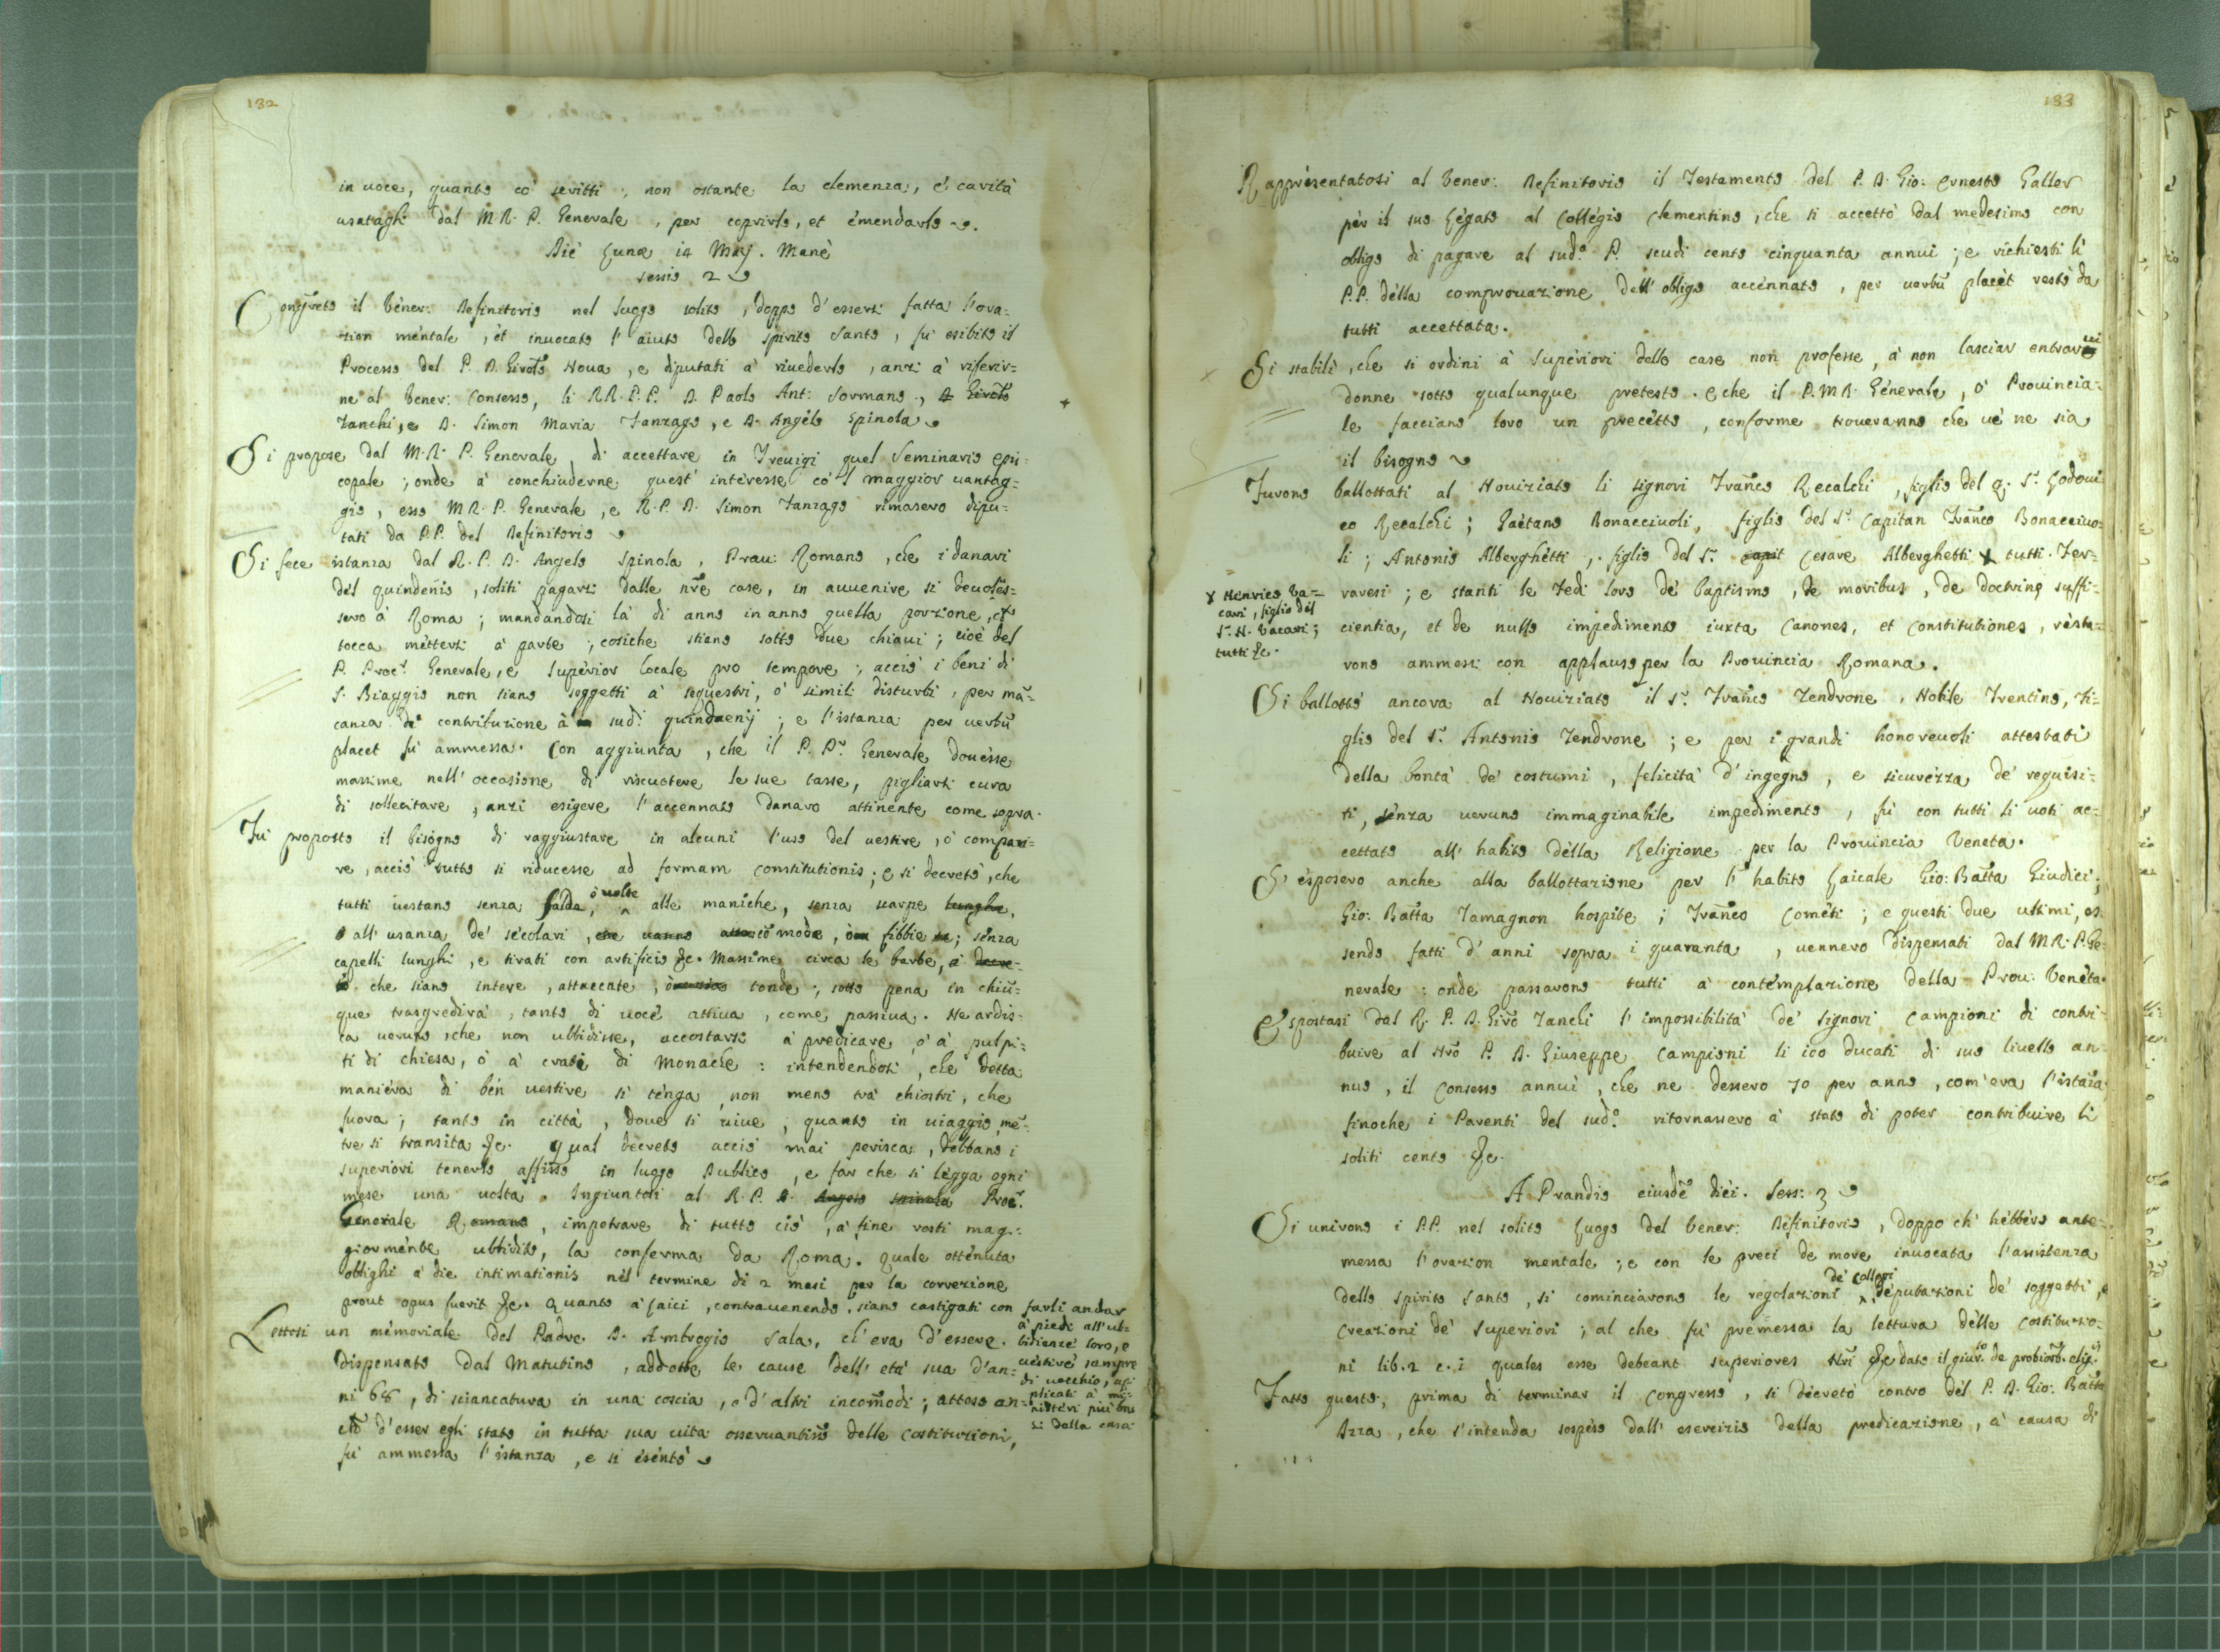 182
in uoce, quanto co' scritti; non ostante la clemenza, e' carità
usatagli dal M.R. P. Generale, per coprirlo, et emendarlo.
Die Lunæ 14 Maij. Manè
sessio 2
Congreto il Vener: Definitorio nel luogo solito, doppo d'essersi fatta l'ora-
tion mentale, et inuocato l'aiuto dello Spirito Santo, fù esibito il
Processo del P. D. Girol.o Noua, e diputati à riuederlo, anzi à riferir-
ne al Vener: Consesso, li RR. P.P. D. Paolo Ant: Sormano, D. Girol.o
Zanchi, e D. Simon Maria Tanzago, e D. Angelo Spinola
Si propose dal M.R. P. Generale di accettare in Treuigi quel Seminario epis-
copale; onde à conchiuderne quest' interesse co'l maggior uantag-
gio, esso M.R. P. Generale, e R.P. D. Simon Tanzago rimasero dipu-
tati da P.P. del Definitorio
Si fece istanza dal R. P. D. Angelo Spinola, Prou: Romano, che i danari
del quindenio, soliti pagarsi dalle nre case, in auuenire si deuoles-
sero à Roma; mandandosi là di anno in anno quella porzione, ch
tocca mettersi à parte; cosiche stiano sotto due chiaui; cioè del
P. Proc.r Generale, e Superior locale pro tempore; acciò i beni di
S. Biaggio non siano soggetti à sequestri, ò simili disturbi, per mã-
canza di contribuzione à sud.i quindenij; e l'istanza per uerbũ
placet fù ammessa. Con aggiunta, che il P. P.r Generale douesse
massime nell' occasione di riscuotere le sue tasse, pigliarsi cura
di sollecitare, anzi esigere l'accennato danaro attinente come sopra.
Fù proposto il bisogno di raggiustare in alcuni l'uso del uestire, ò compari-
re, acciò tutto si riducesse ad formam Constitutionis; e si decretò, che
tutti uestano senza falda, ò uolte alle maniche, senza scarpe lunghe,
all' usanza de' secolari, che uanno alla mode, fibbie; senza
capelli lunghi, e tirati con artificio &c. Massime circa le barbe,
che siano intere, attaccate, tonde; sotto pena in chiũ-
que trasgredirà, tanto di uoce attiua, come passiua. Ne ardis-
ca ueruno, che non ubbidisse, accostarsi à predicare, ò à pulpi-
ti di chiesa, ò à crati di Monache: intendendosi, che detta
maniera di ben uestire si tenga, non meno trà chiostri, che
fuora; tanto in città, doue si uiue; quanto in uiaggio, mẽ-
tre si transita &c. Qual decreto acciò mai perisca, debbano i
superiori tenerlo affisso in luogo Publico, e far che si legga ogni
mese una uolta. Ingiuntosi al R.P. D. Angelo Spinola Proc.r
Generale Romano, impetrare di tutto ciò, à fine resti mag-
giormente ubbidito, la conferma da Roma. Quale ottenuta
oblighi à die intimationis nel termine di 2 mesi per la correzione
prout opus fuerit &c. Quanto à laici, contrauenendo, siano castigati con farli andar
à piedi all' ub-
bidienze loro, e
uestire sempre
di uecchio, ap-
plicati à mi-
nisteri più bas-
si della casa
Lettosi un memoriale del Padre D. Ambrogio Sala, ch' era d'essere
dispensato dal Matutino, addotte le cause dell' età sua d'an-
ni 68, di sciancatura in una coscia, e d'altri incom̃odi; attoso an-
chõ d'esser egli stato in tutta sua uita osseruantis.o delle Costituzioni,
fù ammessa l'istanza, e si esentò
183
Rappresentatosi al Vener: Definitorio il Testamento del P. D. Gio: Ernesto Galler
per il suo Legato al Collegio Clementino, che si accettò dal medesimo con
obligo di pagare al sud.o P. scudi cento cinquanta annui; e richiesti li
P.P. della comprouazione dell' obligo accennato, per uerbũ placet restò da
tutti accettata.
Si stabilì, che si ordini à Superiori delle case non professe, à non lasciar entrarui
donne sotto qualunque pretesto. E che il P.M.R. Generale, ò Prouincia-
le facciano loro un precetto, conforme troueranno che ue ne sia
il bisogno
Furono ballottati al Nouiziato li signori Franco Recalchi, figlio del q. S.r Lodoui-
co Recalchi; Gaetano Bonacciuoli, figlio del S.r Capitan Franco Bonacciuo-
li; Antonio Alberghetti, figlio del S.r capit Cesare Alberghetti X tutti Fer-
X Henrico Va-
cari, figlio del
S.r N. Vacari;
tutti &c.
raresi; e stanti le Fedi loro de baptismo, de moribus, de doctrinę suffi-
cientia, et de nullo impedimento iuxta Canones, et Constitutiones, resta-
rono ammessi con applauso per la Prouincia Romana.
Si ballottò ancora al Nouiziato il S.r Franco Zendrone, Nobile Trentino, fi-
glio del S.r Antonio Zendrone; e per i grandi honoreuoli attestati
della bontà de' costumi, felicità d'ingegno, e sicurezza de' requisi-
ti, senza ueruno immaginabile impedimento, fù con tutti li uoti ac-
cettato all' habito della Religione per la Prouincia Veneta.
S'esposero anche alla ballottazione per l'habito Laicale Gio: Batta Giudici;
Gio: Batta Tamagnon hospite; Franco Cometi; e questi due ultimi, es-
sendo fatti d'anni sopra i quaranta, uennero dispensati dal M.R. P. Ge-
nerale: onde passarono tutti à contemplazione della Prou: Veneta.
Espostasi dal R. P. D. Giro Zanchi l'impossibilità de' signori Campioni di contri-
buire al Nro P. D. Giuseppe Campioni li 100 ducati di suo liuello an-
nuo, il Consesso annuì, che ne dessero 70 per anno, com' era l'istãza
finoche i Parenti del sud.o ritornassero à stato di poter contribuire li
soliti cento &c.
A Prandio eiusdẽ diei. Sess: 3
Si unirono i P.P. nel solito Luogo del Vener: Definitorio, doppo ch' hebbero ante-
messa l'orazion mentale; e con le preci de more inuocata l'assistenza
dello Spirito Santo, si cominciarono le regolazioni de' Collegi, deputazioni de' soggetti, e
Creazioni de' Superiori; al che fù premessa la lettura delle Costituzio-
ni lib.2 c.i quales esse debeant superiores Nri &c dato il giur.to de probiorib. elig.is
Fatto questo, prima di terminar il Congresso, si decretò contro del P. D. Gio: Batta
Azza, che s'intenda sospeso dall' esercizio della predicazione, à causa di